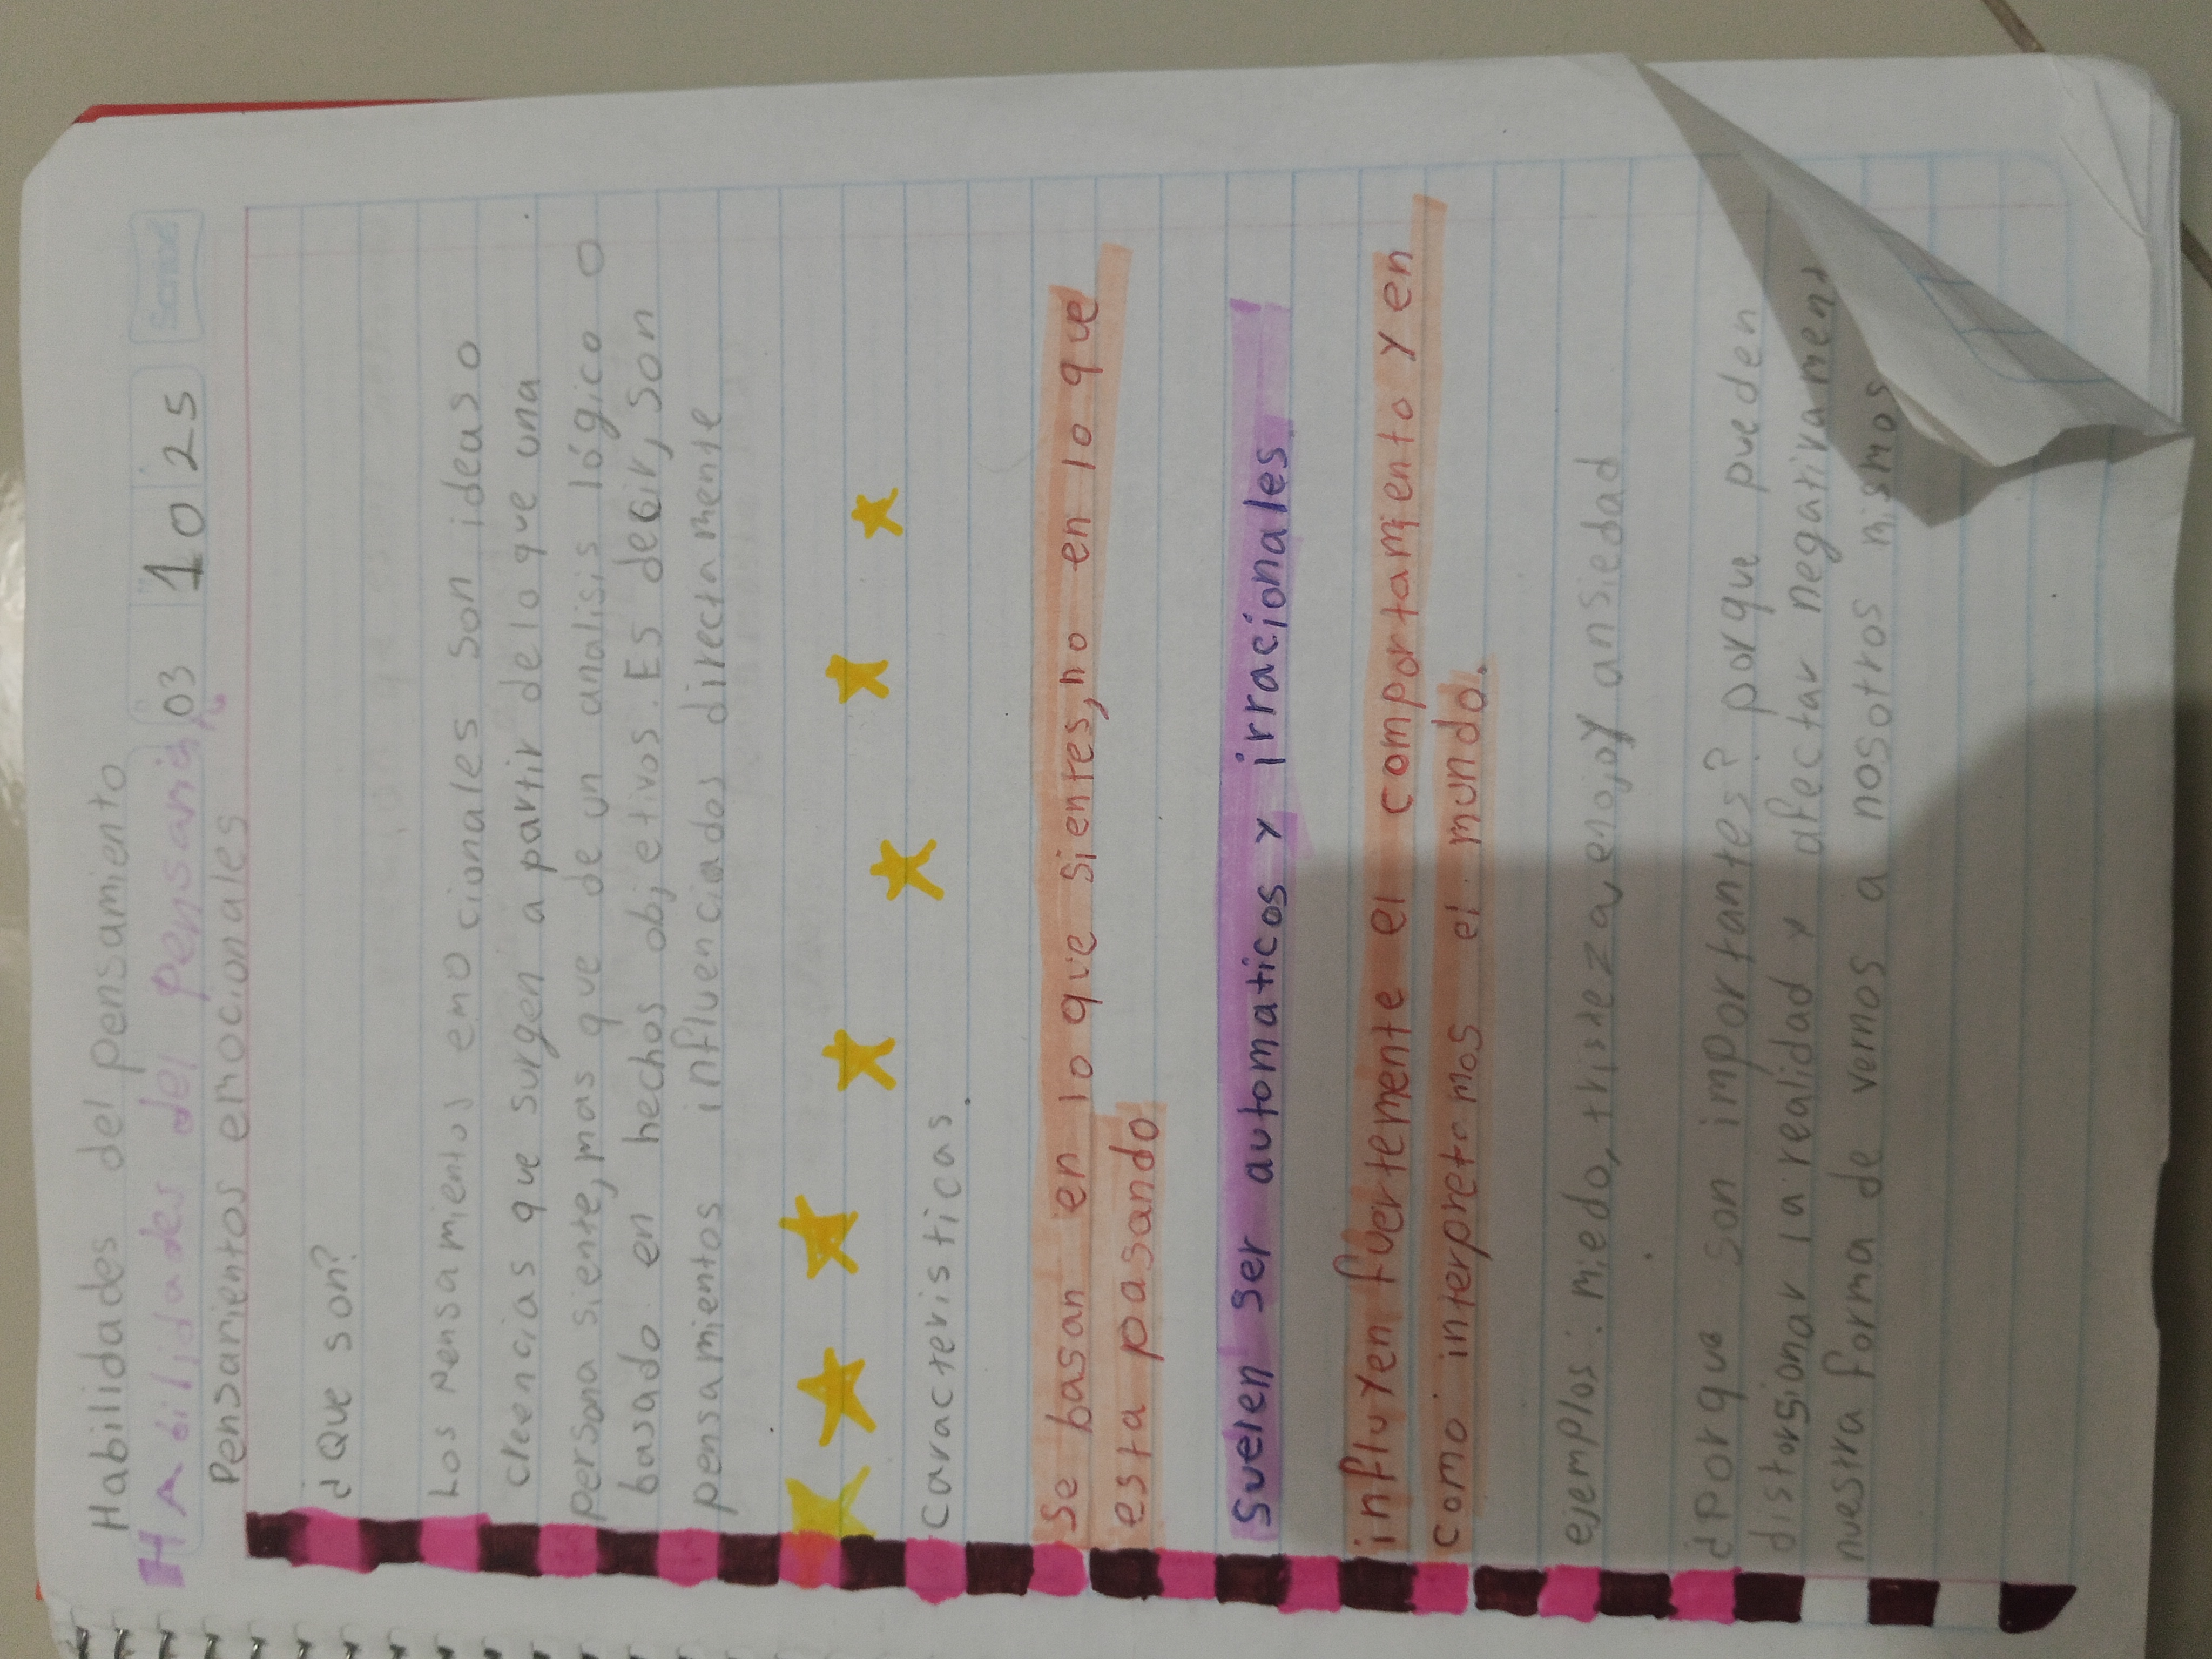 Habilidades del pensamiento
Habilidades del Pensami
03 10 25 Scribe
Pensamientos emocionales
¿Que son?
Los pensamientos emocionales son ideas o
creencias que surgen a partir de lo que una
persona siente, mas que de un analisis lógico o
basado en hechos objetivos. Es decir, son
pensamientos influenciados directamente
caracteristicas
Se basan en lo que sientes, no en lo que
esta pasando
Suelen ser automaticos y irracionales
influyen fuertemente el comportamiento y en
como interpretamos el mundo.
ejemplos: miedo, tristeza, enojo y ansiedad
¿Porque son importantes? porque pueden
distorsionar la realidad y afectar negativament
nuestra forma de vernos a nosotros mismos